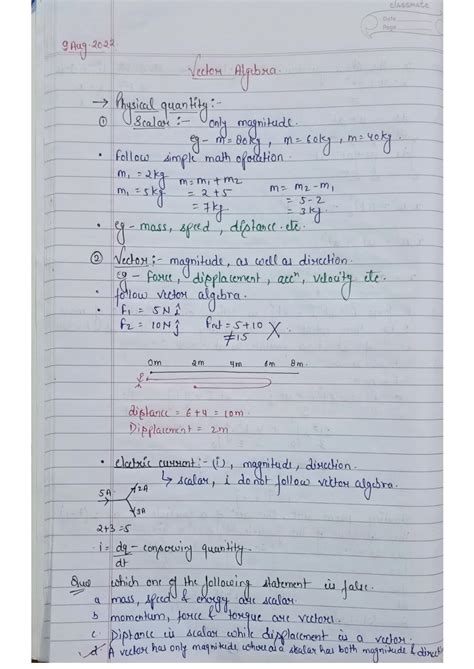 classmate
Date
Page
9 Aug 2022
Vector Algebra.
→ Physical quantity:-
① Scalar:- only magnitude.
eg - m = 80kg, m = 60kg, m = 40kg
• follow simple math operation.
m₁ = 2kg m = m₁ + m₂ m = m₂ - m₁
m₁ = 5kg = 2 + 5 = 5 - 2
= 7kg = 3kg.
• eg - mass, speed, distance etc.
② Vector:- magnitude, as well as direction.
eg - force, displacement, accⁿ, velocity etc
• follow vector algebra.
• f₁ = 5N ĵ
f₂ = 10N ĵ fnet = 5 + 10 X
≠ 15
0m 2m 4m 6m 8m.
distance = 6 + 4 = 10m.
Displacement = 2m
• electric current:- (i), magnitude, direction.
↳ scalar, i do not follow vector algebra.
5A 2A
3A
2+3=5
i = dq - conserving quantity.
dt
Ques which one of the following statement is false.
a mass, speed & energy are scalar.
b momentum, force & torque are vectors.
c. Distance is scalar while displacement is a vector.
d. A vector has only magnitude whereas a scalar has both magnitude & direct